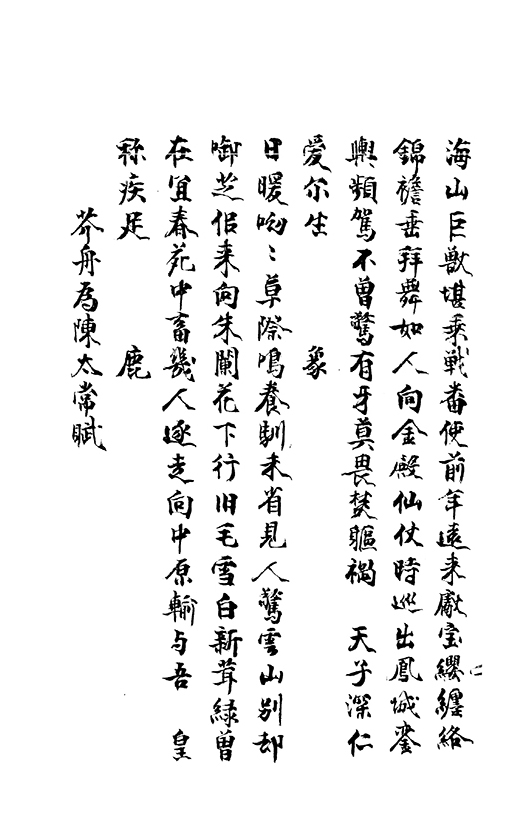 海山巨獸堪乘戦番使前年遠来獻宝纓纏絡
錦襜垂拜舞如人向金殿仙仗時巡出鳳城銮
輿頻駕不曾驚有牙莫畏焚軀禍　天子深仁
愛尔生　　象
日暖呦〻草際鳴養馴未省見人驚雲山別却
啣芝侣来向朱闌花下行旧毛雪白新茸緑曾
在宜春苑中畜幾人逐走向中原輸与吾　皇
称疾足　　鹿
芥舟為陳太常賦